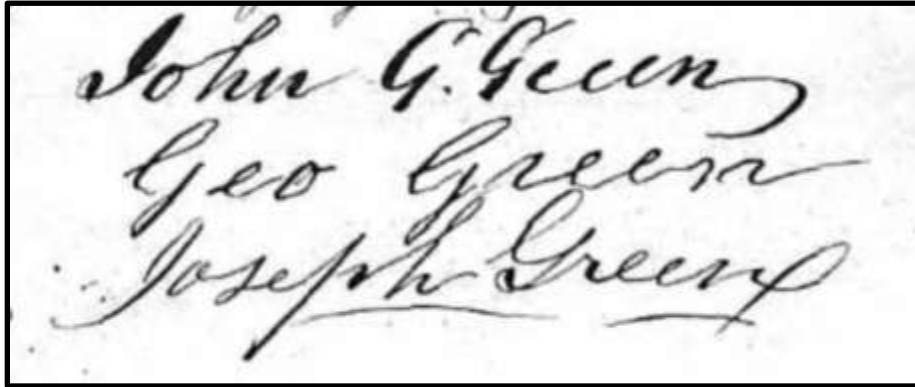 John G. Green
Geo Green
Joseph Green